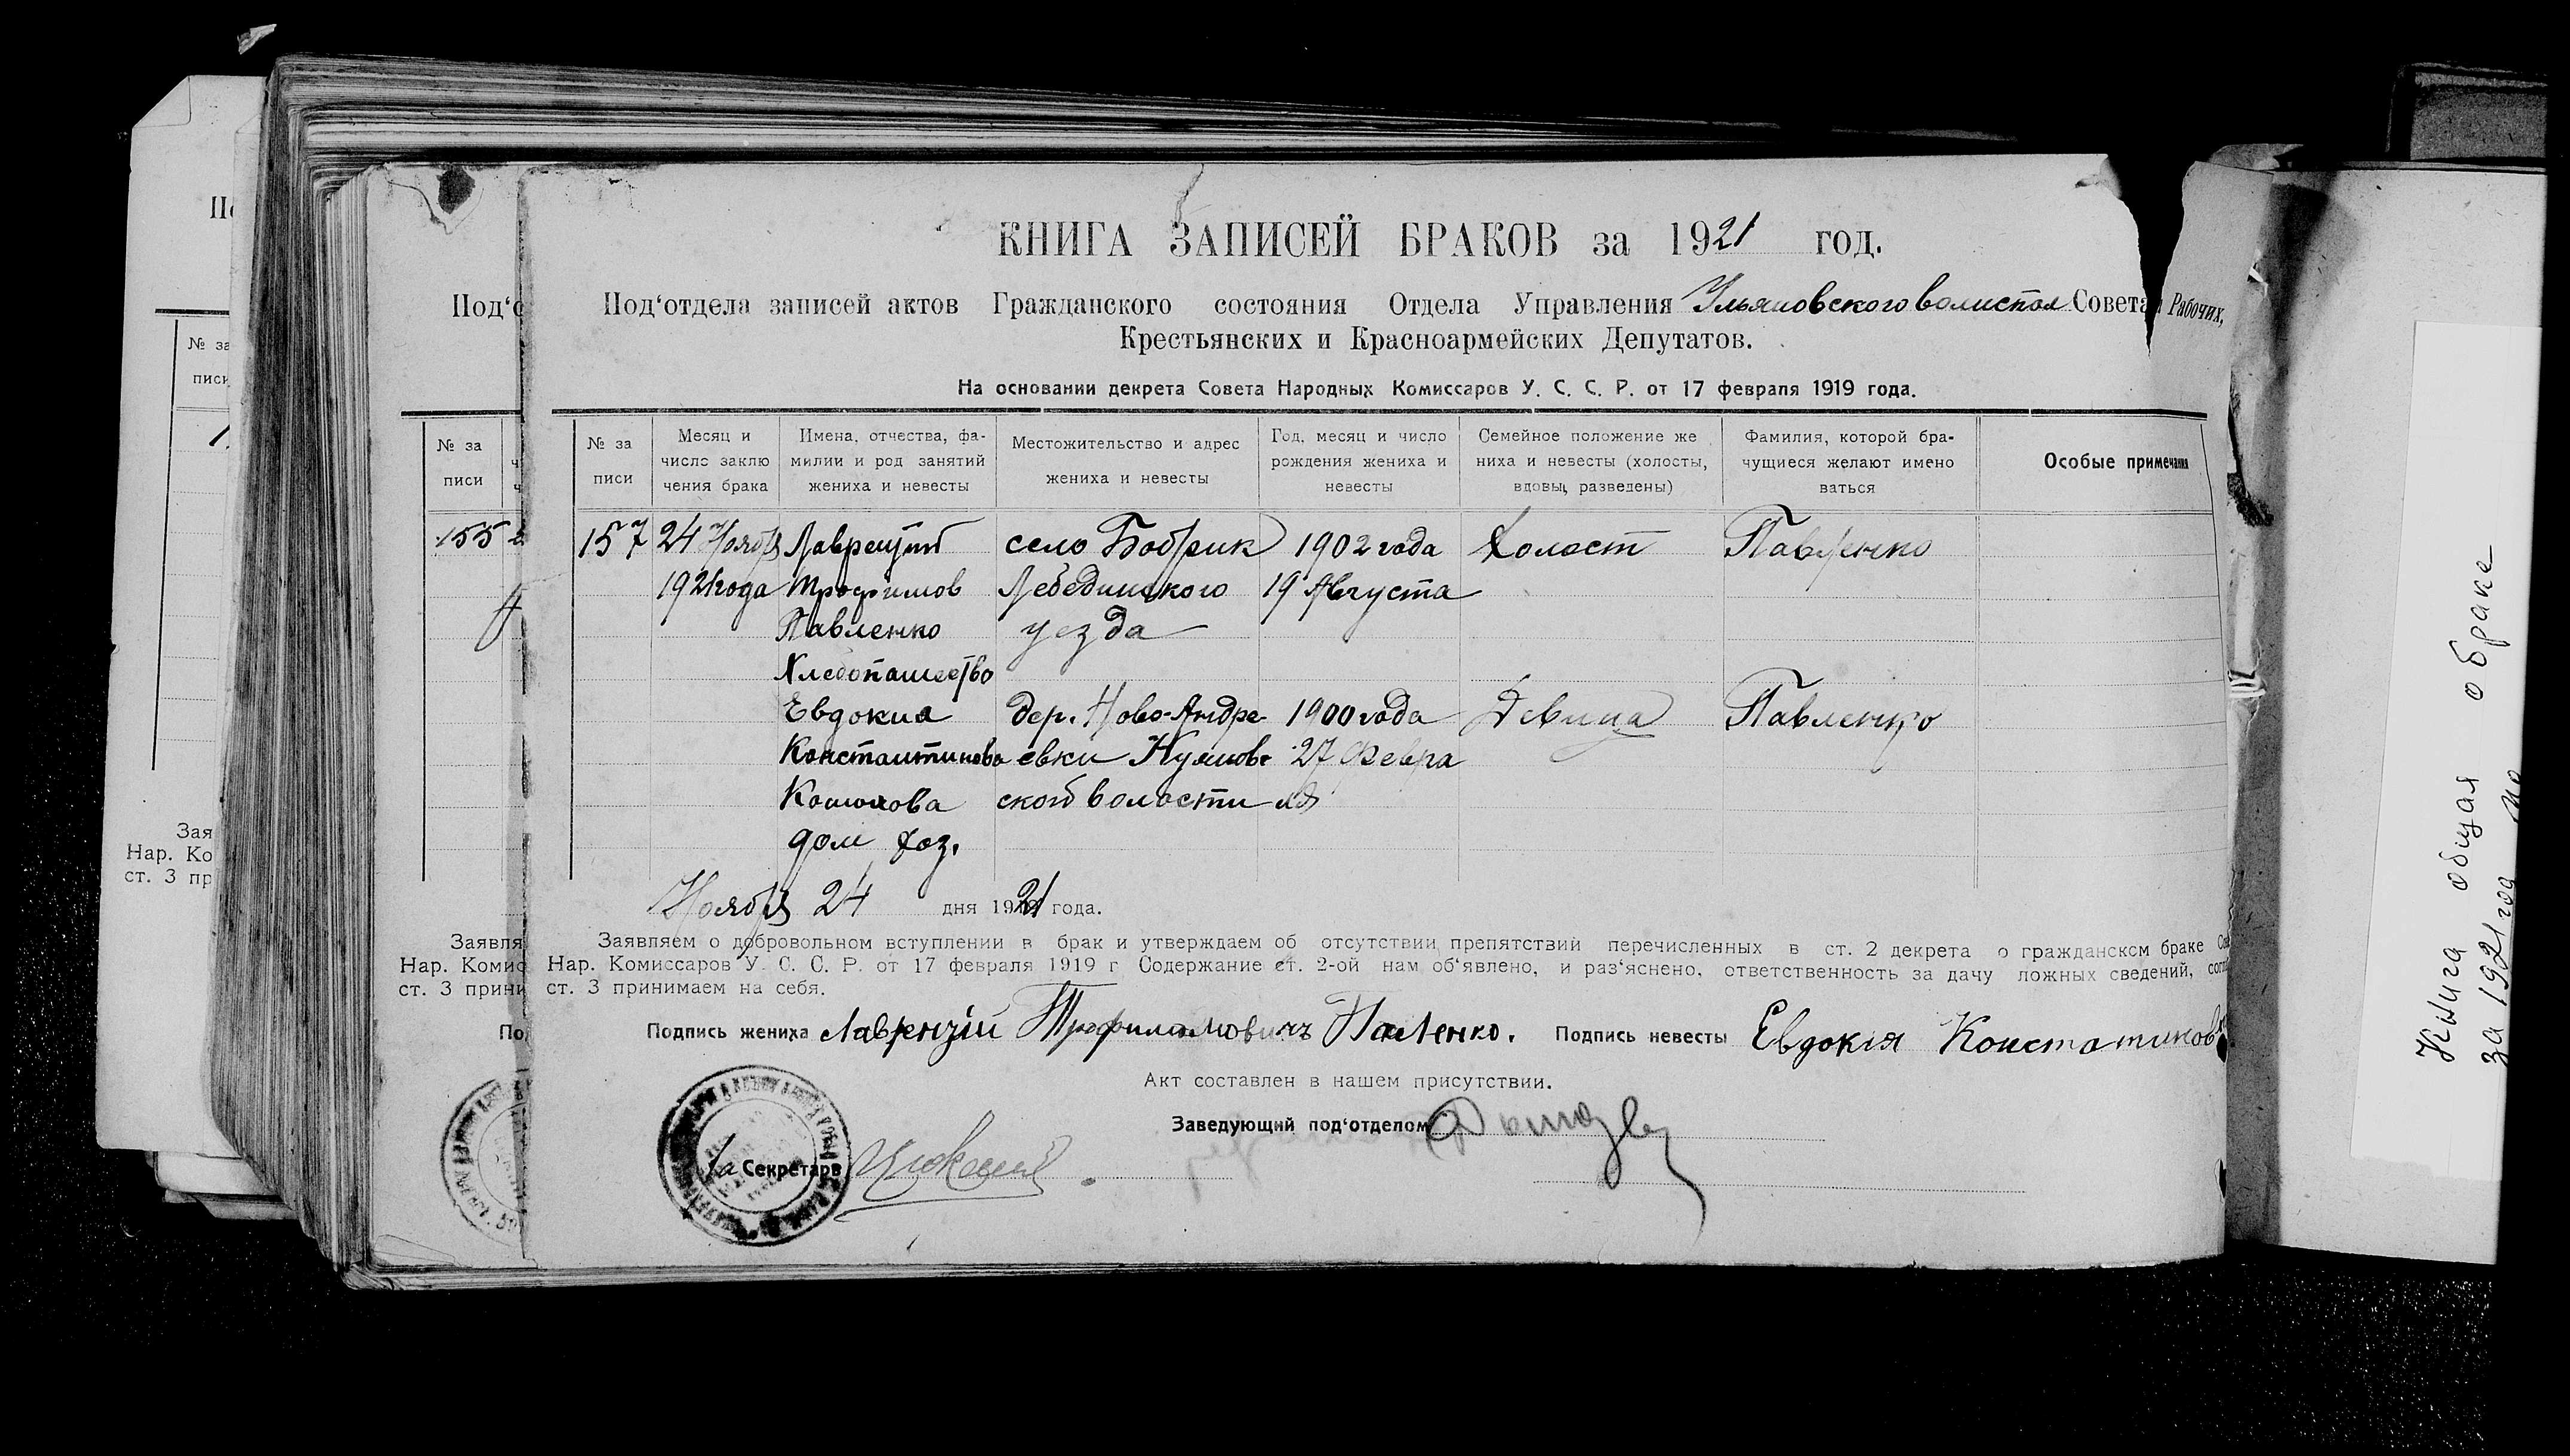 КНИГА ЗАПИСЕЙ БРАКОВ за 1921 год.
Под‘отдела записей актов Гражданского состояния Отдела Управления Ульяновского волиспол Совета Рабочих,
Крестьянских и Красноармейских Депутатов.
На основании декрета Совета Народных Комиссаров У. С. С. Р. от 17 февраля 1919 года.
№ за писи
Месяц и число заклю чения брака
Имена, отчества, фа- милии и род занятий жениха и невесты
Местожительство и адрес жениха и невесты
Год, месяц и число рождения жениха и невесты
Семейное положение же ниха и невесты (холосты, вдовы, разведены)
Фамилия, которой бра- чущиеся желают имено ваться
Особые примечания
155
157 24 Ноябр Лаврентий село Бобрик 1902 года Холост Павленко
1921 года Трофимов Лебединского 19 Августа
Павленко уезда
Хлебопашество
Евдокиа дер. Ново-Андре- 1900 года Девица Павленко
Константинова евки 27 Февра
ской волости ля
дом хоз.
Ноябр 24 дня 1921 года.
Заявляем о добровольном вступлении в брак и утверждаем об отсутствии препятствий перечисленных в ст. 2 декрета о гражданском браке
Нар. Комиссаров У. С. С. Р. от 17 февраля 1919 г. Содержание ст. 2-ой нам об‘явлено, и раз‘яснено, ответственность за дачу ложных сведений,
ст. 3 принимаем на себя.
Подпись жениха Лаврензій Трофимович Павленко. Подпись невесты Евдокія Констатинов
Акт составлен в нашем присутствии.
Заведующий под‘отделом
За Секретаря
№ за писи
Под‘о
Заявля
Нар. Комис
ст. 3 прини
По
№ за
писи
Зая
Нар. Ко
ст. 3 пр
Книга общая о браке
за 1921 год по